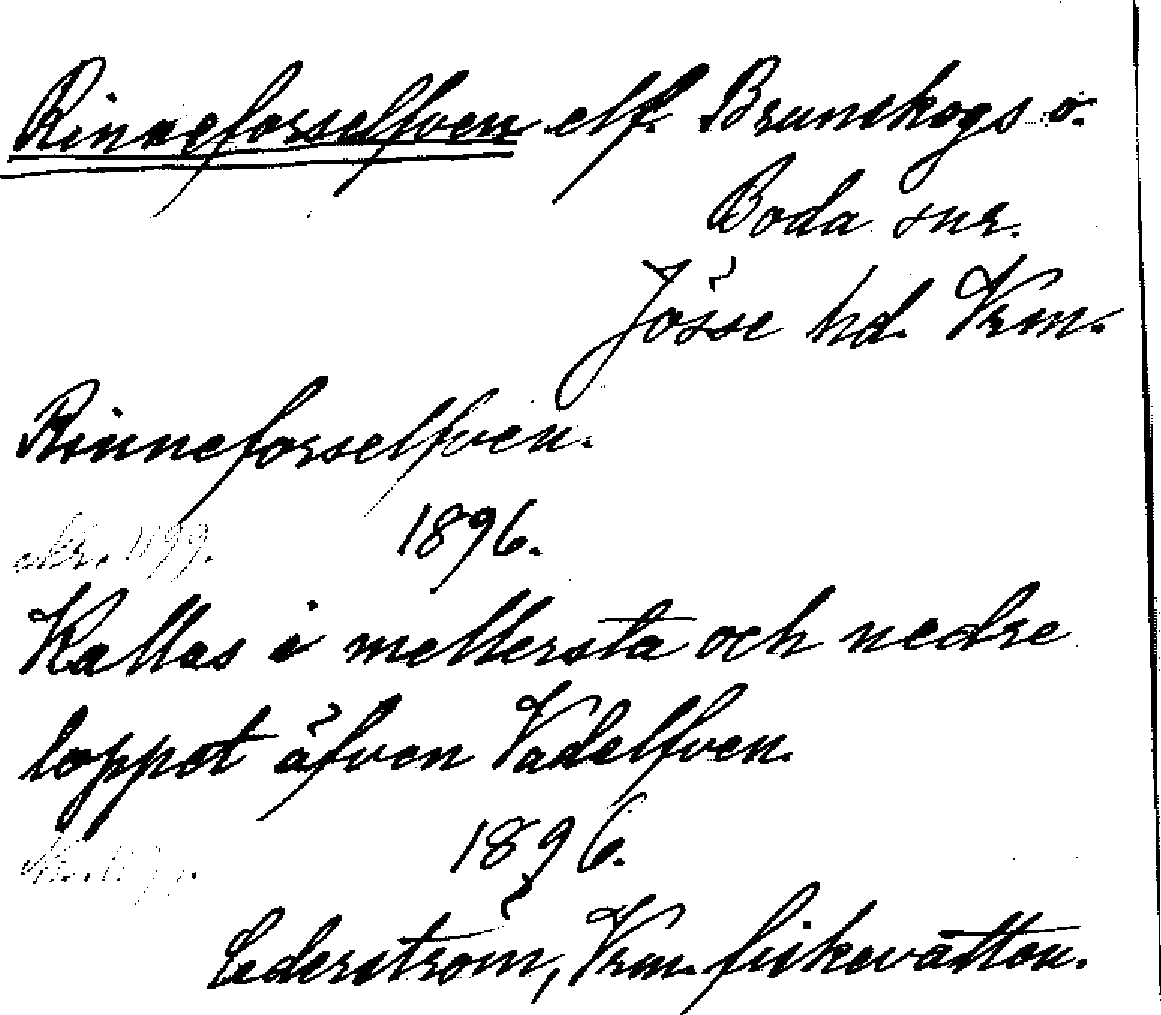 Rinneforselfven elf. Brunskogs o.
Boda snr.
Jösse hd. Vrm.
Rinneforselfven.
skr. 1899. 1896.
Kallas i mellersta och nedre
loppet äfven Vadelfven.
1896.
Cederström, Vrm. fiskevatten.